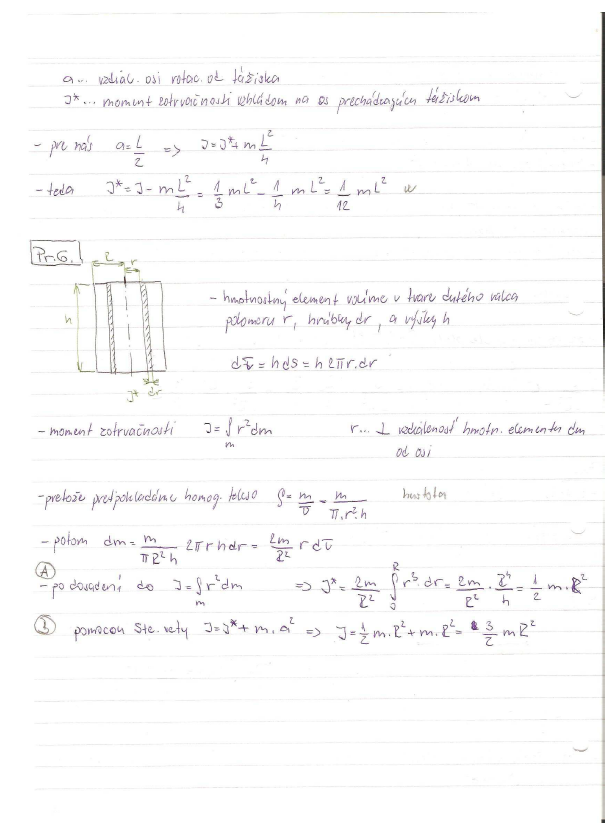 a... vzdial. osi rotac. od ťažiska
J*... moment zotrvačnosti vzhľadom na os prechádzajúcu ťažiskom
- pre nás a = L/2 => J = J* + m L²/4
- teda J* = J - m L²/4 = 1/3 mL² - 1/4 mL² = 1/12 mL²
Pr.6.
R r
h
J* dr
- hmotnostný element volíme v tvare dutého valca
polomeru r, hrúbky dr, a výšky h
dτ = h dS = h 2πr.dr
- moment zotrvačnosti J = ∫ r² dm
m
r... ⊥ vzdialenosť hmotn. elementu dm
od osi
- pretože predpokladáme homog. teleso ρ = m/τ = m/(π.r².h) hustota
- potom dm = m/(πR²h) 2πrhdr = 2m/R² r dτ
A
- po dosadení do J = ∫ r² dm => J* = 2m/R² ∫ r³ dr = 2m/R² . R⁴/4 = 1/2 m.R²
m 0 R
B pomocou Ste. vety J = J* + m.a² => J = 1/2 m.R² + m.R² = 3/2 mR²